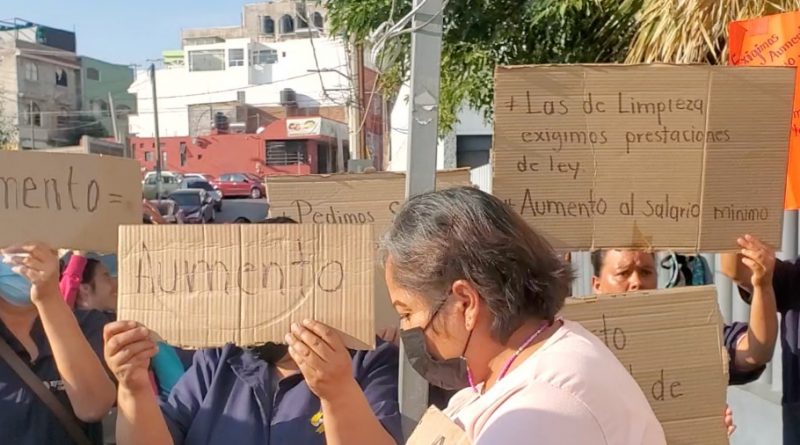 mento =
Aumento
Pedimos S
# Las de Limpieza
exigimos prestaciones
de ley.
# Aumento al Salario minimo
Exigimos
y Aumen
to
de